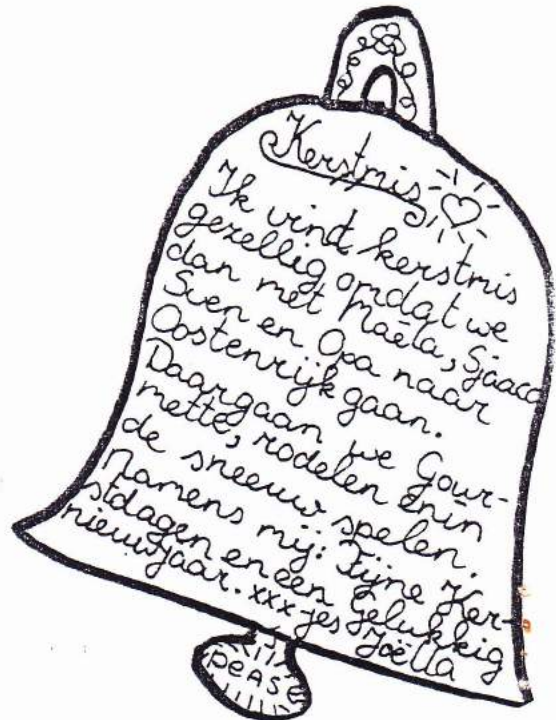 Kerstmis
Ik vind kerstmis
gezellig omdat we
dan met Maëla, Sjaaco
Sven en Opa naar
Oostenrijk gaan.
Daar gaan we Gour-
mette, rodelen en in
de sneeuw spelen.
Namens mij: Fijne Ker-
stdagen en een Gelukkig
nieuwjaar. xxx-jes Joëlla
peAs